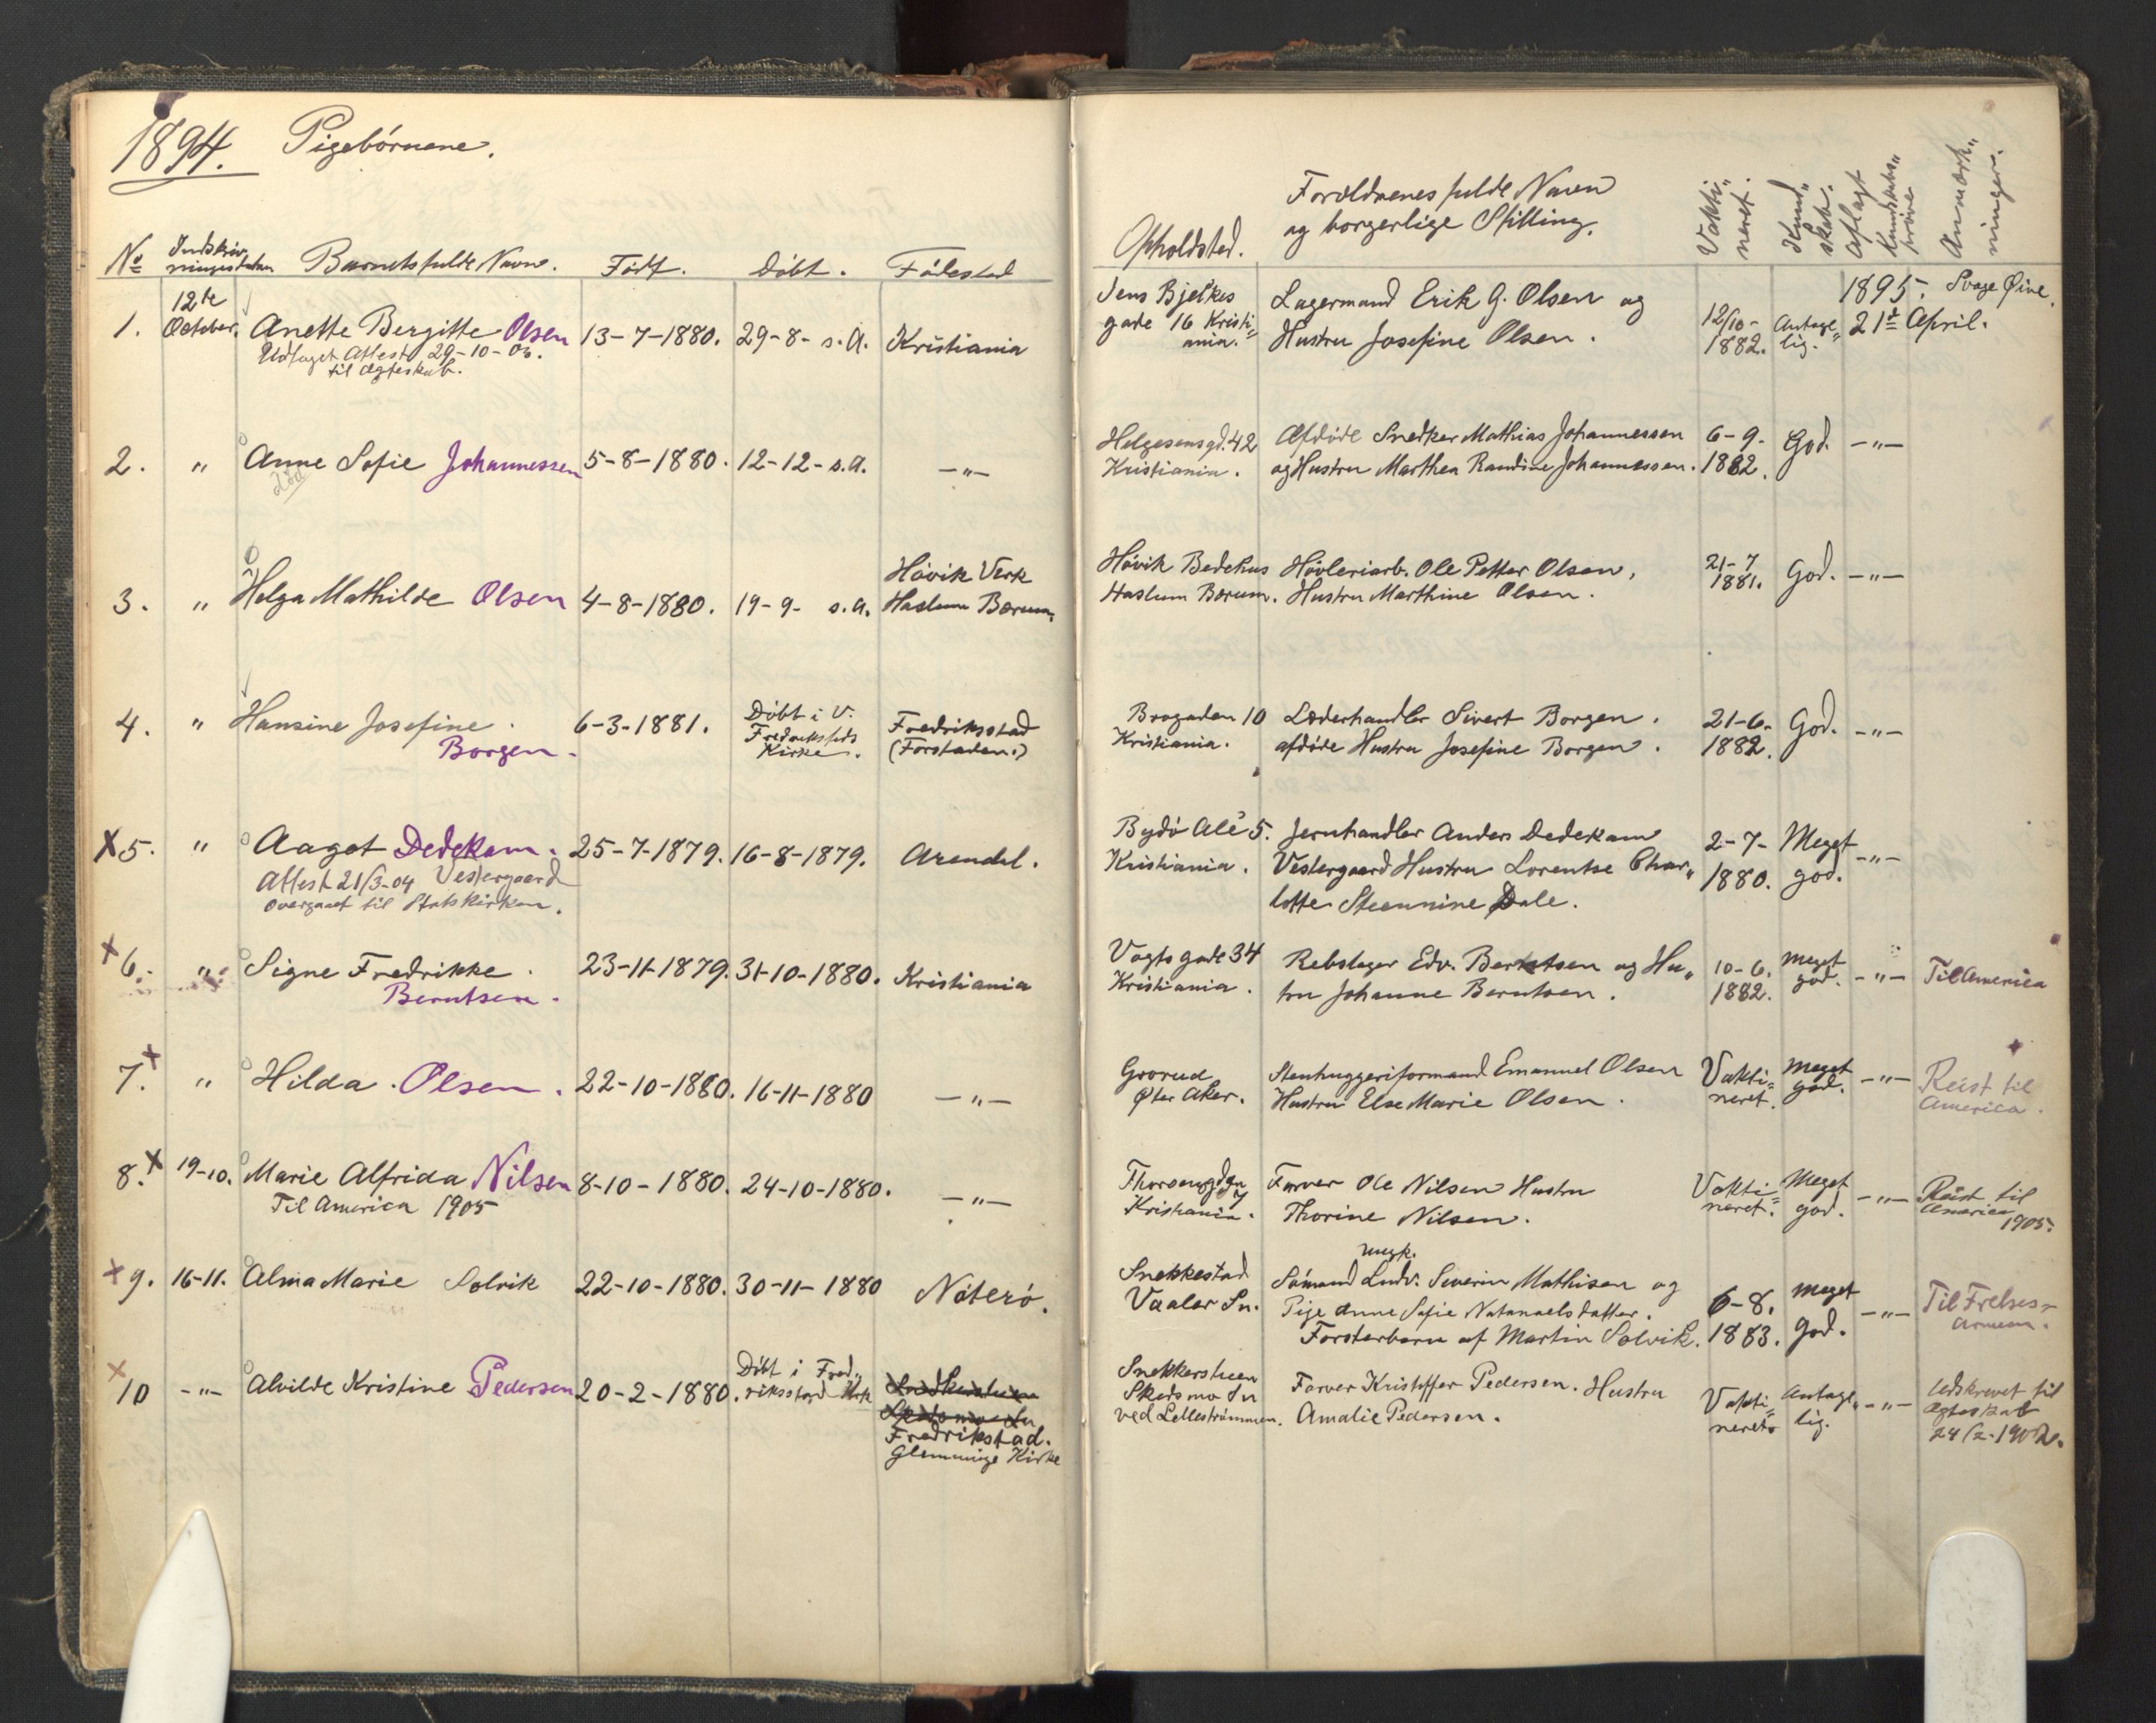 1894. Pigebørnene.
No Indskriv- ningsdatum Barnets fulde Navn. Født. Døbt. Fødested
Opholdsted. Forældrenes fulde Navn og borgerlige Stilling. Vakti- neret. Kund- skab. Aflagt Kundskabs- prøve Anmærk- ninger.
1. 12te October. Anette Bergitte Olsen 13-7-1880. 29-8- s.A. Kristiania
Udtaget Attest 29-10-
til Ægteskab.
Jens Bjelkes
gade 16 Kristi-
ania.
Lagermand Erik G. Olsen og
Hustru Josefine Olsen.
12/10-
1882.
Antage-
lig.
1895.
21de April.
Svage Øine.
2. " Anne Sofie Johannessen 5-8-1880. 12-12- s.A. -"-
død
Helgesensgd. 42
Kristiania.
Afdøde Snedker Mathias Johannessen
og Hustru Marthea Randine Johannessen.
6-9-
1882.
God. -"-
3. " Helga Mathilde Olsen 4-8-1880. 19-9- s.A.
Høvik Verk
Haslum Bærum.
Høvik Bedehus
Haslum Bærum.
Høvleriarb. Ole Petter Olsen,
Hustru Marthine Olsen.
21-7
1881.
God. -"-
4. " Hansine Josefine
Borgen.
6-3-1881.
Døbt i V.
Fredrikstads
Kirke.
Fredriksstad
(Forstaden.)
Brogaden 10
Kristiania.
Læderhandler Sivert Borgen.
afdøde Hustru Josefine Borgen.
21-6-
1882.
God. -"-
X5. " Aagot Dedekam. 25-7-1879. 16-8-1879. Arendal.
Attest 21/3-04 Vestergaard
Overgaaet til Statskirken.
Bygdø Alé 5.
Kristiania.
Jernhandler Anders Dedekam
Vestergaard Hustru Lorentse Char-
lotte Steennine Dale.
2-7-
1880.
Meget
god.
-"-
X6. " Signe Fredrikke
Berntsen.
23-11-1879. 31-10-1880. Kristiania
Vogts gade 34
Kristiania.
Rebslager Edv. Berntsen og Hu-
tru Johanne Berntsen.
10-6.
1882.
Meget
god.
-"- Til America
7.X " Hilda Olsen. 22-10-1880. 16-11-1880 -"-
Grorud
Øter Aker.
Stenhuggeriformand Emanuel Olsen
Hustru Else Marie Olsen.
Vakti-
neret.
Meget
god.
-"- Reist til
America.
8.X 19-10. Marie Alfrida Nilsen 8-10-1880. 24-10-1880. -"-
Til America 1905
7
Kristiania.
Farver Ole Nilsen Hustru
Thorine Nilsen.
Vakti-
neret.
Meget
god.
-"- Reist til
America
1905.
X9. 16-11. Alma Marie Solvik 22-10-1880. 30-11-1880 Nøterø.
Snekkestad
Vaaler Sn.
ungk.
Sømand Ludv. Severin Mathisen og
Pige Anne Sofie Natanaelsdatter.
Forsterbarn af Martin Solvik.
6-8.
1883.
Meget
god.
-"- Til Frelses-
armeen.
X10 -"- Alvilde Kristine Pedersen 20-2-1880.
Døbt i Fred-
riksstad Kirk
Snekkerstuen
Skedsmo Sn
Fredrikstad.
Glemminge Kirke
Snekkerstuen
Skedsmo Sn
ved Lellestrømmen.
Farver Kristoffer Pedersen. Hustru
Amalie Pedersen.
Vakti-
neret
Antage-
lig.
-"- Udskrevet til
Ægteskab
24/2-1902.